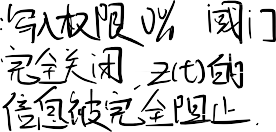 写入权限 0% 阀门
完全关闭. z(t)的
信息被完全阻止.